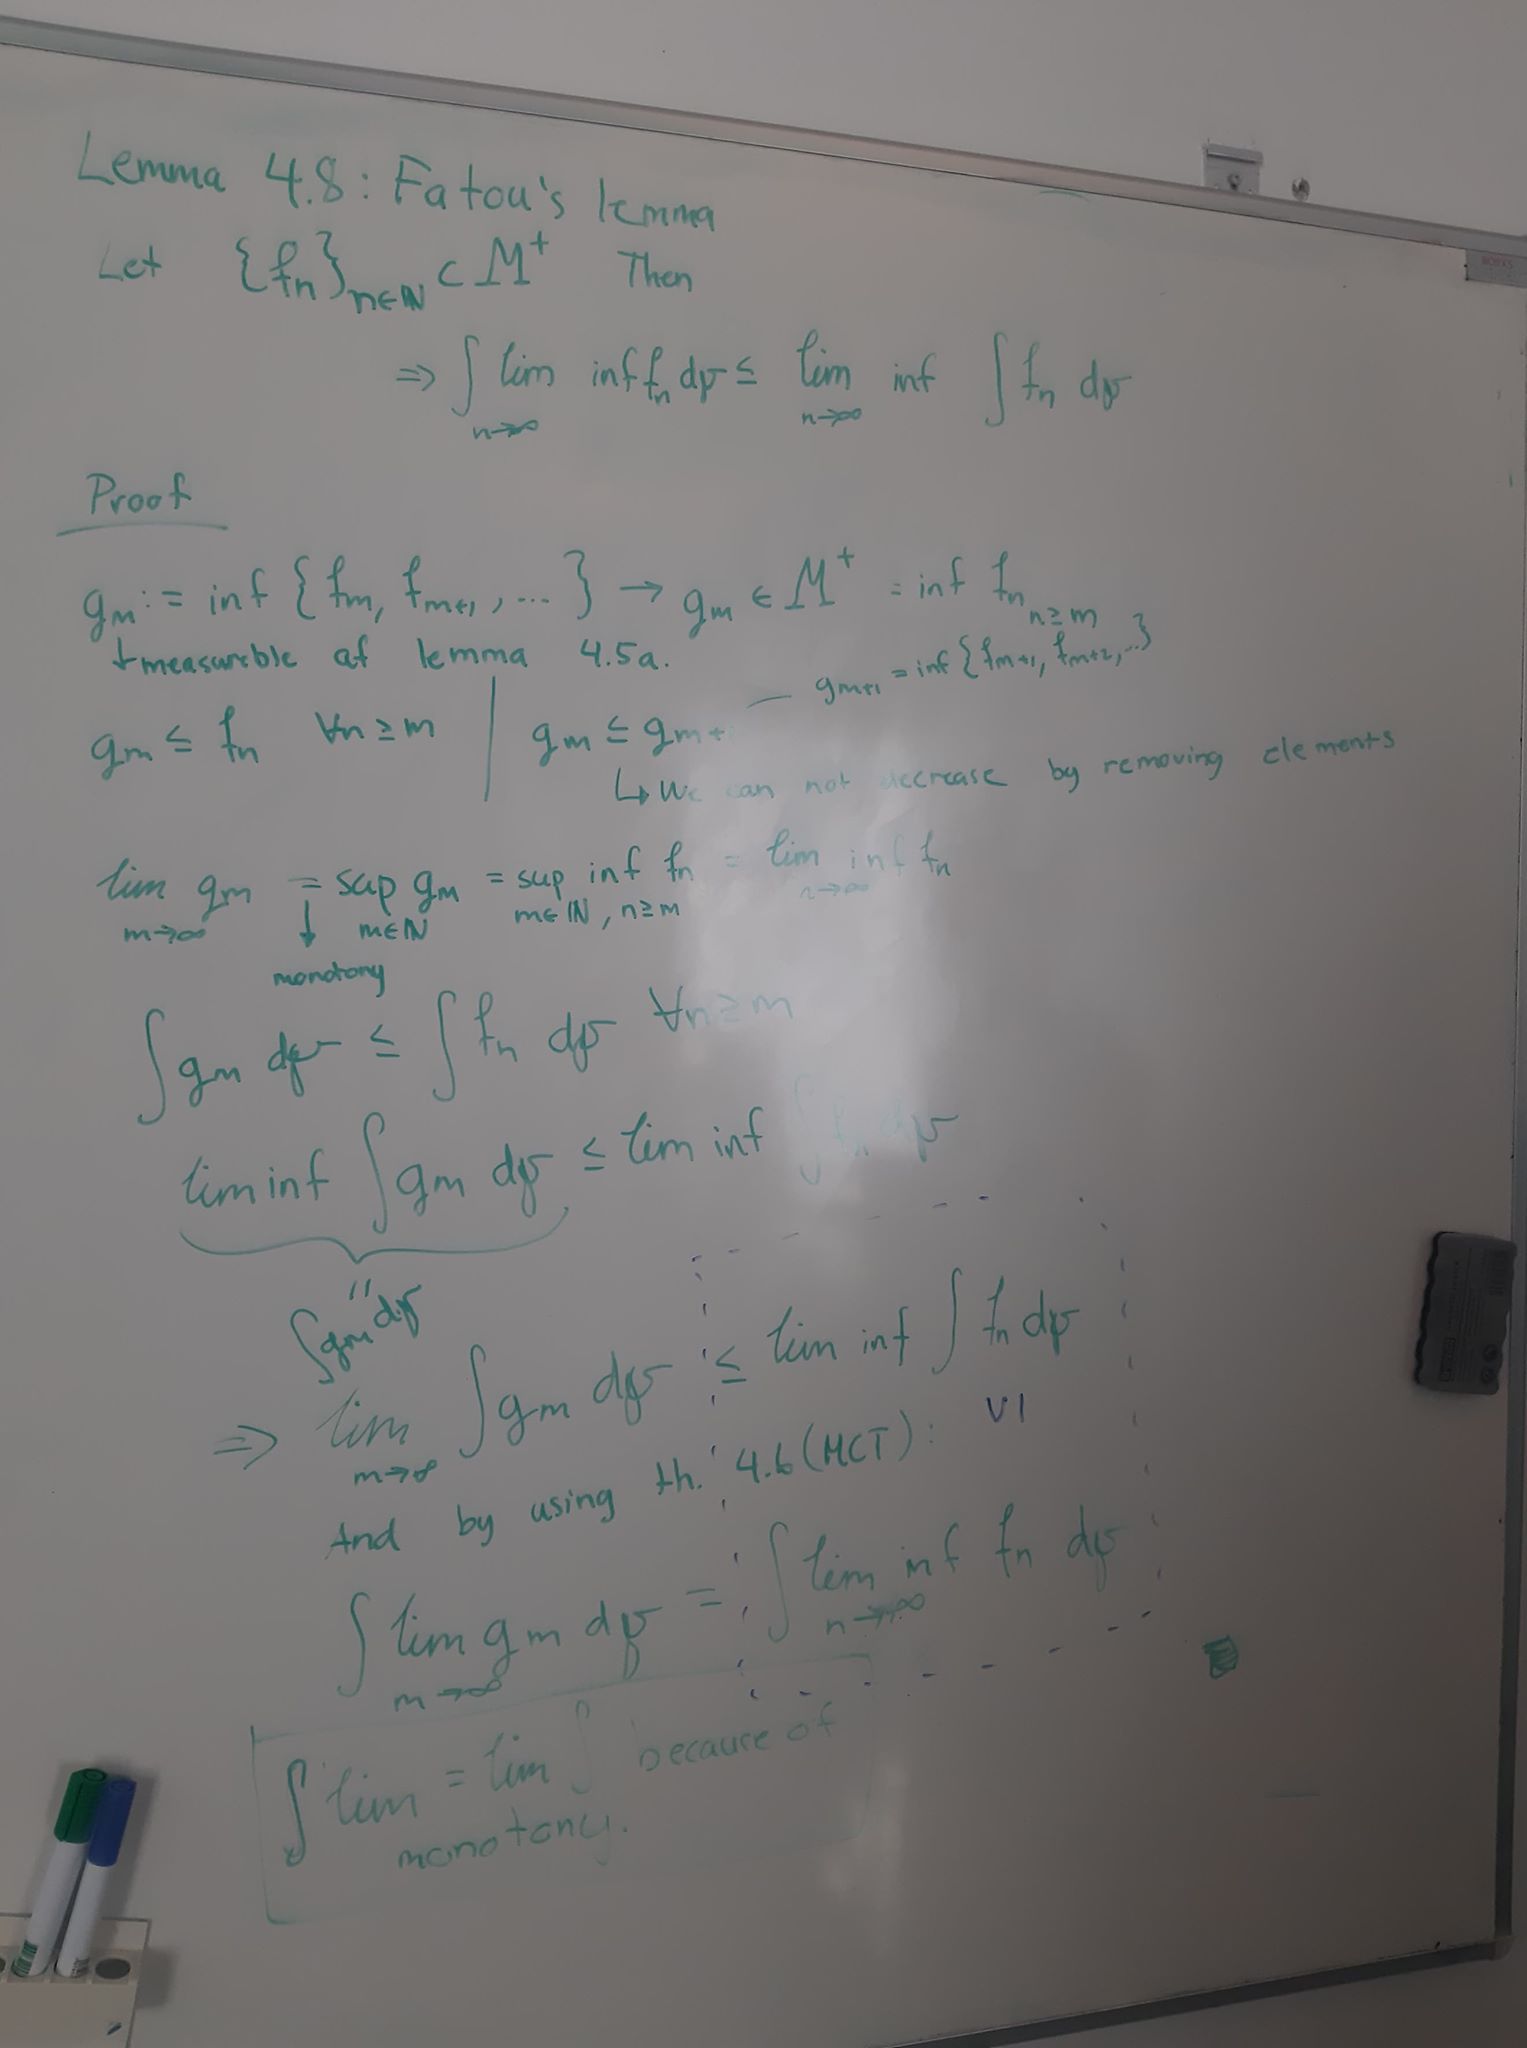 Lemma 4.8: Fatou's lemma
Let {fn}n∈ℕ ⊂ M⁺ Then
⇒ ∫ lim inf fn dμ ≤ lim inf ∫ fn dμ
n→∞ n→∞
Proof
gm := inf {fm, fm+1, ...} → gm ∈ M⁺ = inf fn n≥m
↓ measurable af lemma 4.5a.
gm+1 = inf {fm+1, fm+2, ...}
gm ≤ fn ∀n≥m | gm ≤ gm+
↳ We can not decrease by removing elements
lim gm = sup gm = sup inf fn = lim inf fn
m→∞ ↓ m∈ℕ m∈ℕ, n≥m n→∞
monotony
∫ gm dμ ≤ ∫ fn dμ ∀n≥m
lim inf ∫ gm dμ ≤ lim inf ∫ fn dμ
"
∫ gm dμ
⇒ lim ∫ gm dμ ≤ lim inf ∫ fn dμ
m→∞
VI
And by using th. 4.6 (MCT):
∫ lim gm dμ = ∫ lim inf fn dμ
m→∞ n→∞
∫ lim = lim ∫ because of
monotony.